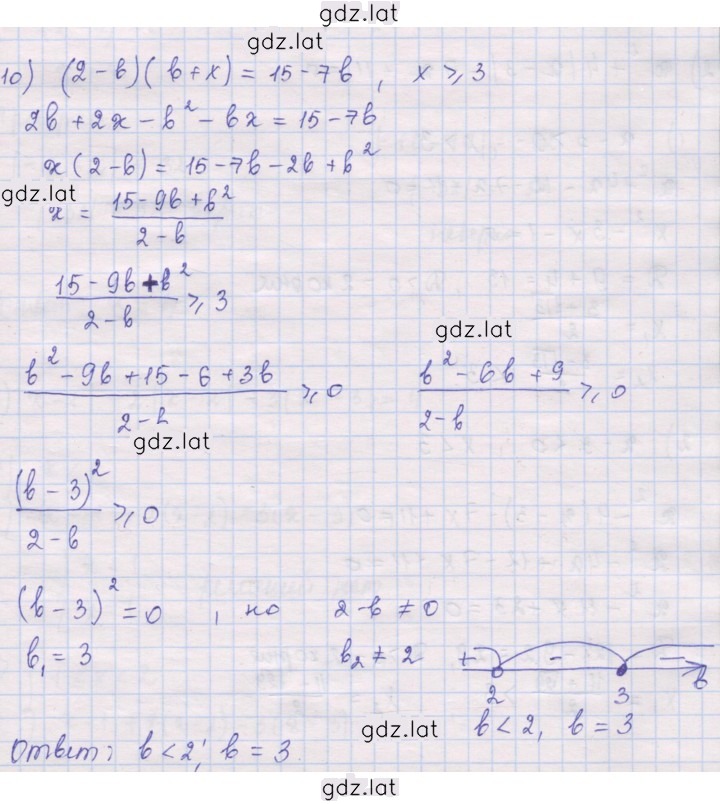 gdz.lat
gdz.lat
10) (2-b)(b+x) = 15-7b, x ⩾ 3
2b+2x-b²-bx = 15-7b
x(2-b) = 15-7b-2b+b²
gdz.lat
x = (15-9b+b²)/(2-b)
(15-9b+b²)/(2-b) ⩾ 3
gdz.lat
(b²-9b+15-6+3b)/(2-b) ⩾ 0 (b²-6b+9)/(2-b) ⩾ 0
gdz.lat
(b-3)²/(2-b) ⩾ 0
(b-3)² = 0, но 2-b ≠ 0
b₁ = 3 b₂ ≠ 2 + - - b
2 3
gdz.lat b<2, b=3
Ответ: b<2; b=3
gdz.lat